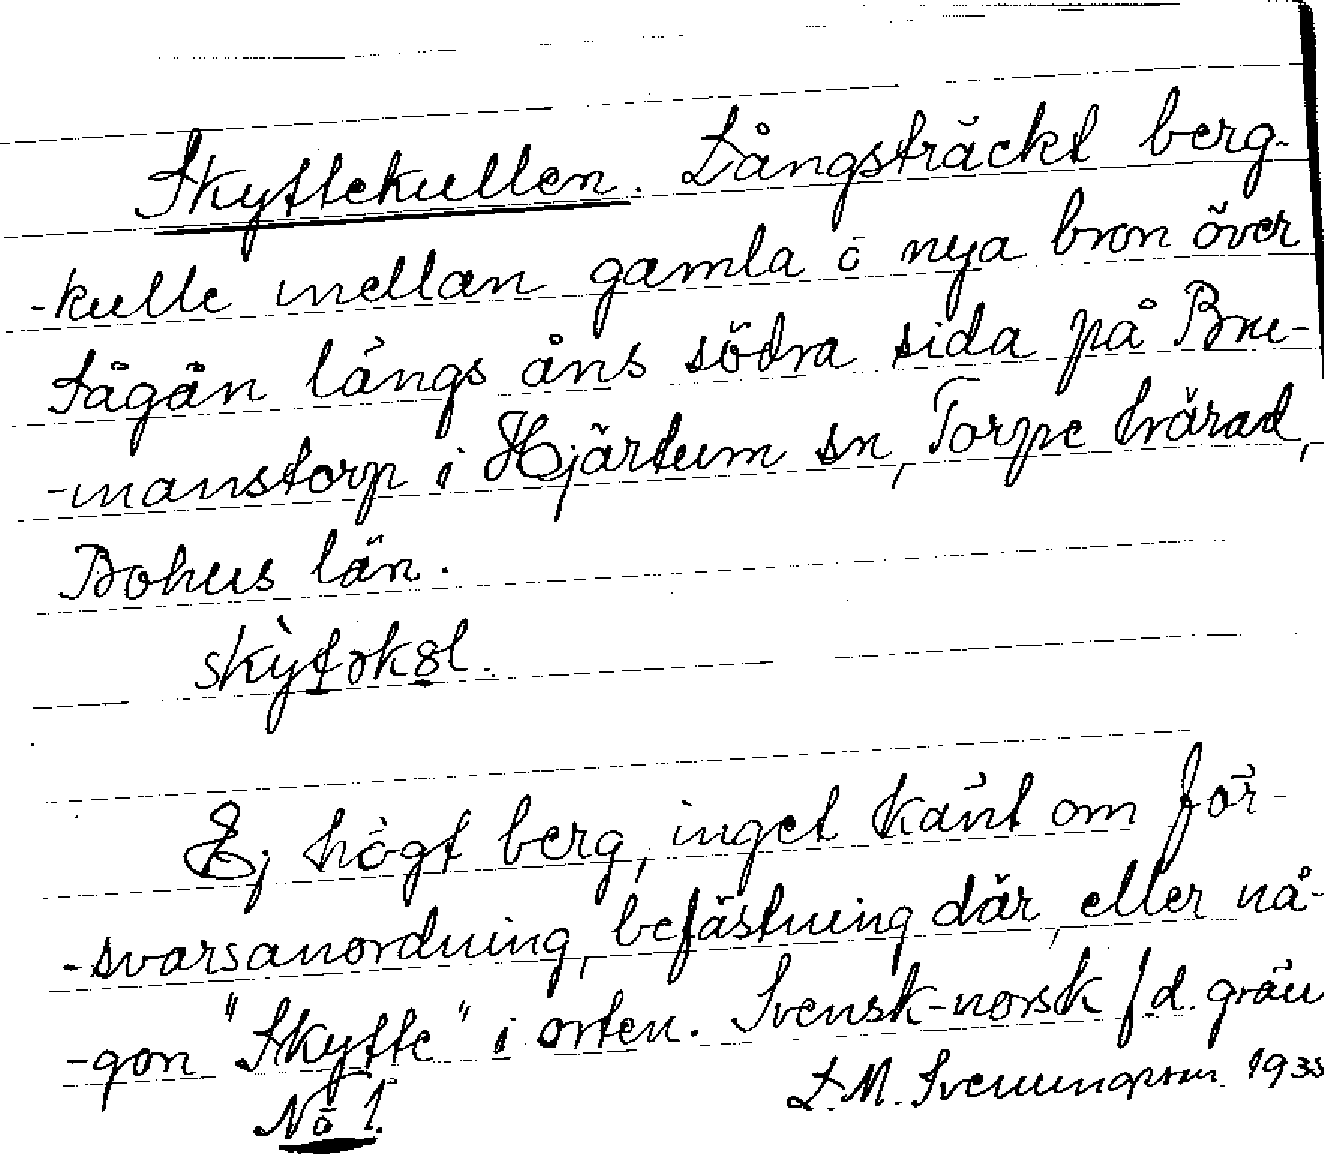 Skyttekullen. Långsträckt berg-
-kulle mellan gamla o nya bron över
Tågån längs åns södra sida på Bru-
-manstorp i Hjärtum sn, Torpe härad,
Bohus län.
skỳtək8l.
Ej högt berg, inget känt om för-
-svarsanordning, befästning där, eller nå-
-gon "Skytte" i orten. Svensk-norsk f d. grän
L. M. Svenungsson. 1935
No 1.